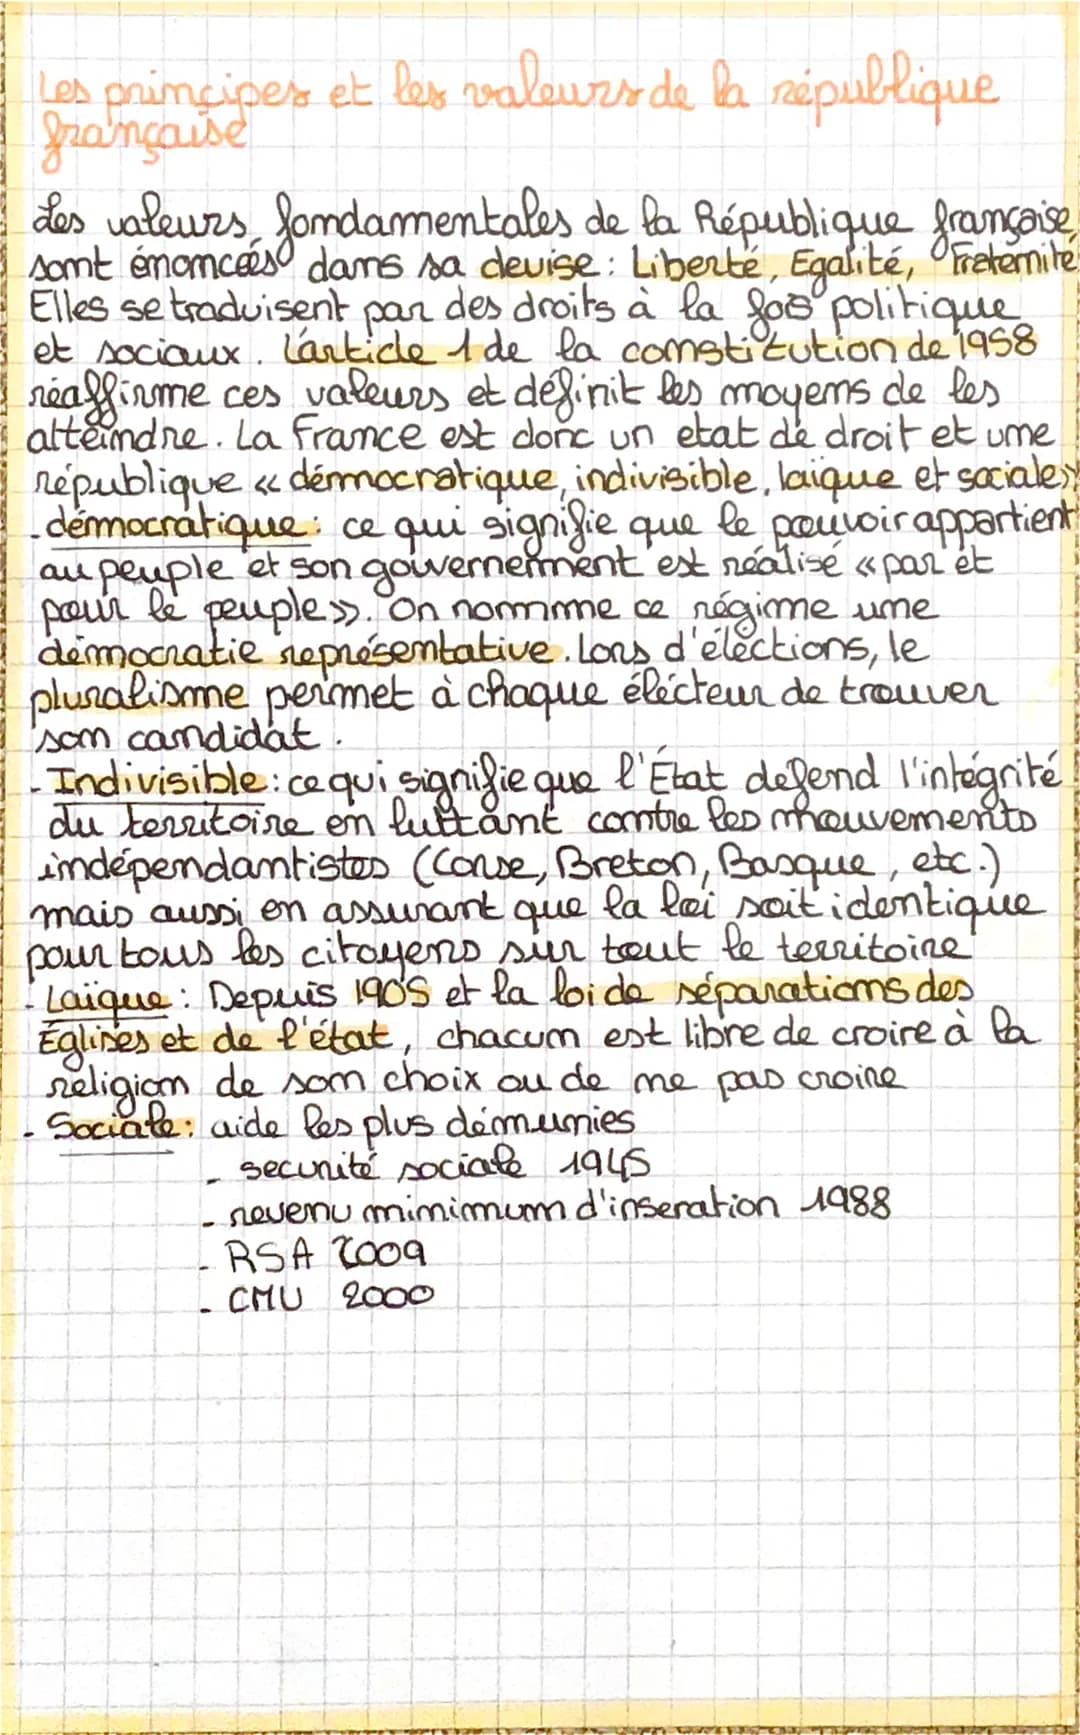 Les principes et les valeurs de la république
française
Les valeurs fondamentales de la République française,
sont énoncées dans sa devise : Liberté, Egalité, Fraternité
Elles se traduisent par des droits à la fois politique
et sociaux. L'article 1 de la constitution de 1958
réaffirme ces valeurs et définit les moyens de les
atteindre. La France est donc un etat de droit et une
république « démocratique, indivisible, laïque et sociale »
- démocratique : ce qui signifie que le pouvoir appartient
au peuple et son gouvernement est réalisé « par et
pour le peuple ». On nomme ce régime une
démocratie représentative. Lors d'élections, le
pluralisme permet à chaque électeur de trouver
son candidat.
- Indivisible : ce qui signifie que l'État défend l'intégrité
du territoire en luttant contre les mouvements
indépendantistes (Corse, Breton, Basque, etc.)
mais aussi en assurant que la loi soit identique
pour tous les citoyens sur tout le territoire
- Laïque : Depuis 1905 et la loi de séparations des
Églises et de l'état, chacun est libre de croire à la
religion de son choix ou de ne pas croire
- Sociale : aide les plus démunies
- securité sociale 1945
- revenu minimum d'inseration 1988
- RSA 2009
- CMU 2000